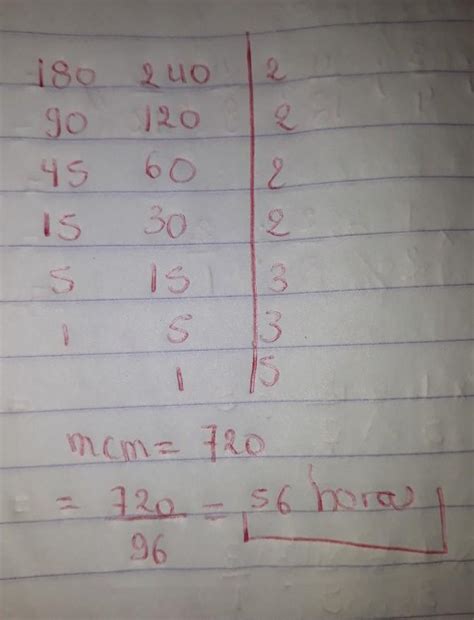 180 240 | 2
90 120 | 2
45 60 | 2
15 30 | 2
5 15 | 3
1 5 | 3
1 | 5
mcm = 720
= 720/96 = 56 horas